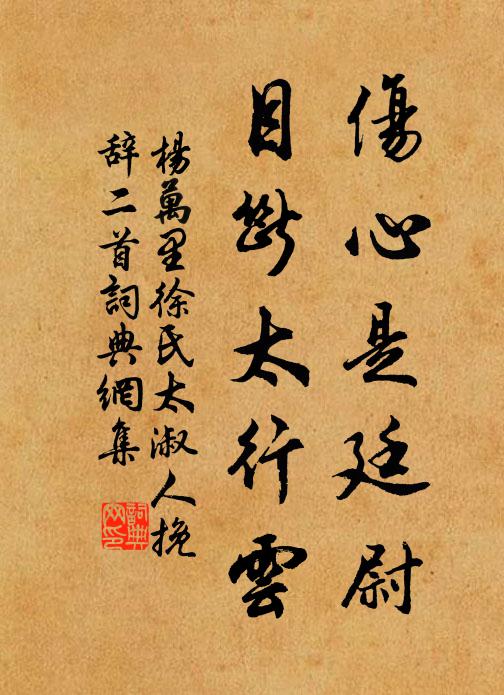 傷心是廷尉
目斷太行雲
楊萬里徐氏太淑人挽
辞二首詞典網集
詞典
网印